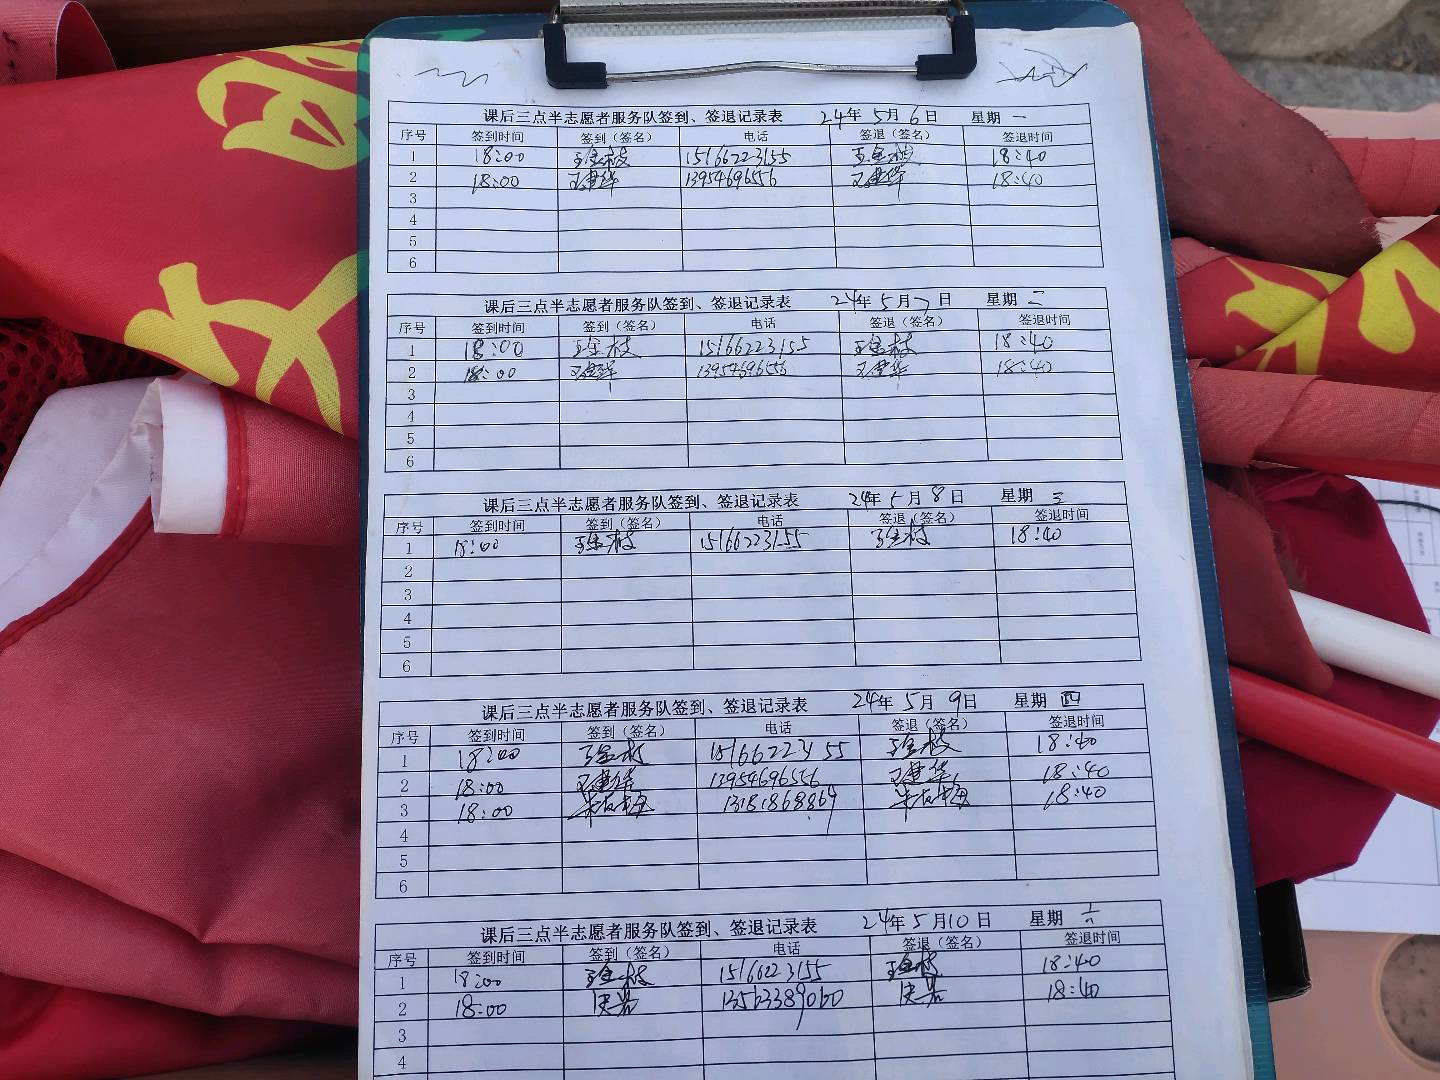 课后三点半志愿者服务队签到、签退记录表 24年5月6日 星期一
序号 签到时间 签到（签名） 电话 签退（签名） 签退时间
1 18:00 王金枝 15166223155 王金枝 18:40
2 18:00 王建华 13954696556 王建华 18:40
3
4
5
6
课后三点半志愿者服务队签到、签退记录表 24年5月7日 星期二
序号 签到时间 签到（签名） 电话 签退（签名） 签退时间
1 18:00 王金枝 15166223155 王金枝 18:40
2 18:00 王建华 13954696556 王建华 18:40
3
4
5
6
课后三点半志愿者服务队签到、签退记录表 24年5月8日 星期三
序号 签到时间 签到（签名） 电话 签退（签名） 签退时间
1 18:00 王金枝 15166223155 王金枝 18:40
2
3
4
5
6
课后三点半志愿者服务队签到、签退记录表 24年5月9日 星期四
序号 签到时间 签到（签名） 电话 签退（签名） 签退时间
1 18:00 王金枝 15166223155 王金枝 18:40
2 18:00 王建华 13954696556 王建华 18:40
3 18:00 13181868864 18:40
4
5
6
课后三点半志愿者服务队签到、签退记录表 24年5月10日 星期
序号 签到时间 签到（签名） 电话 签退（签名） 签退时间
1 18:00 王金枝 15166223155 王金枝 18:40
2 18:00 13563389060 18:40
3
4